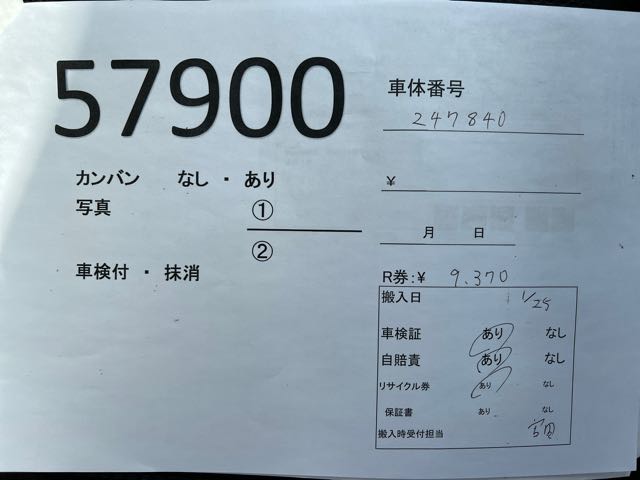 57900
車体番号
247840
カンバン なし ・ あり
¥
写真 ①
月 日
②
車検付 ・ 抹消
R券:¥ 9,370
搬入日 1/25
車検証 あり なし
自賠責 あり なし
リサイクル券 あり なし
保証書 あり なし
搬入時受付担当